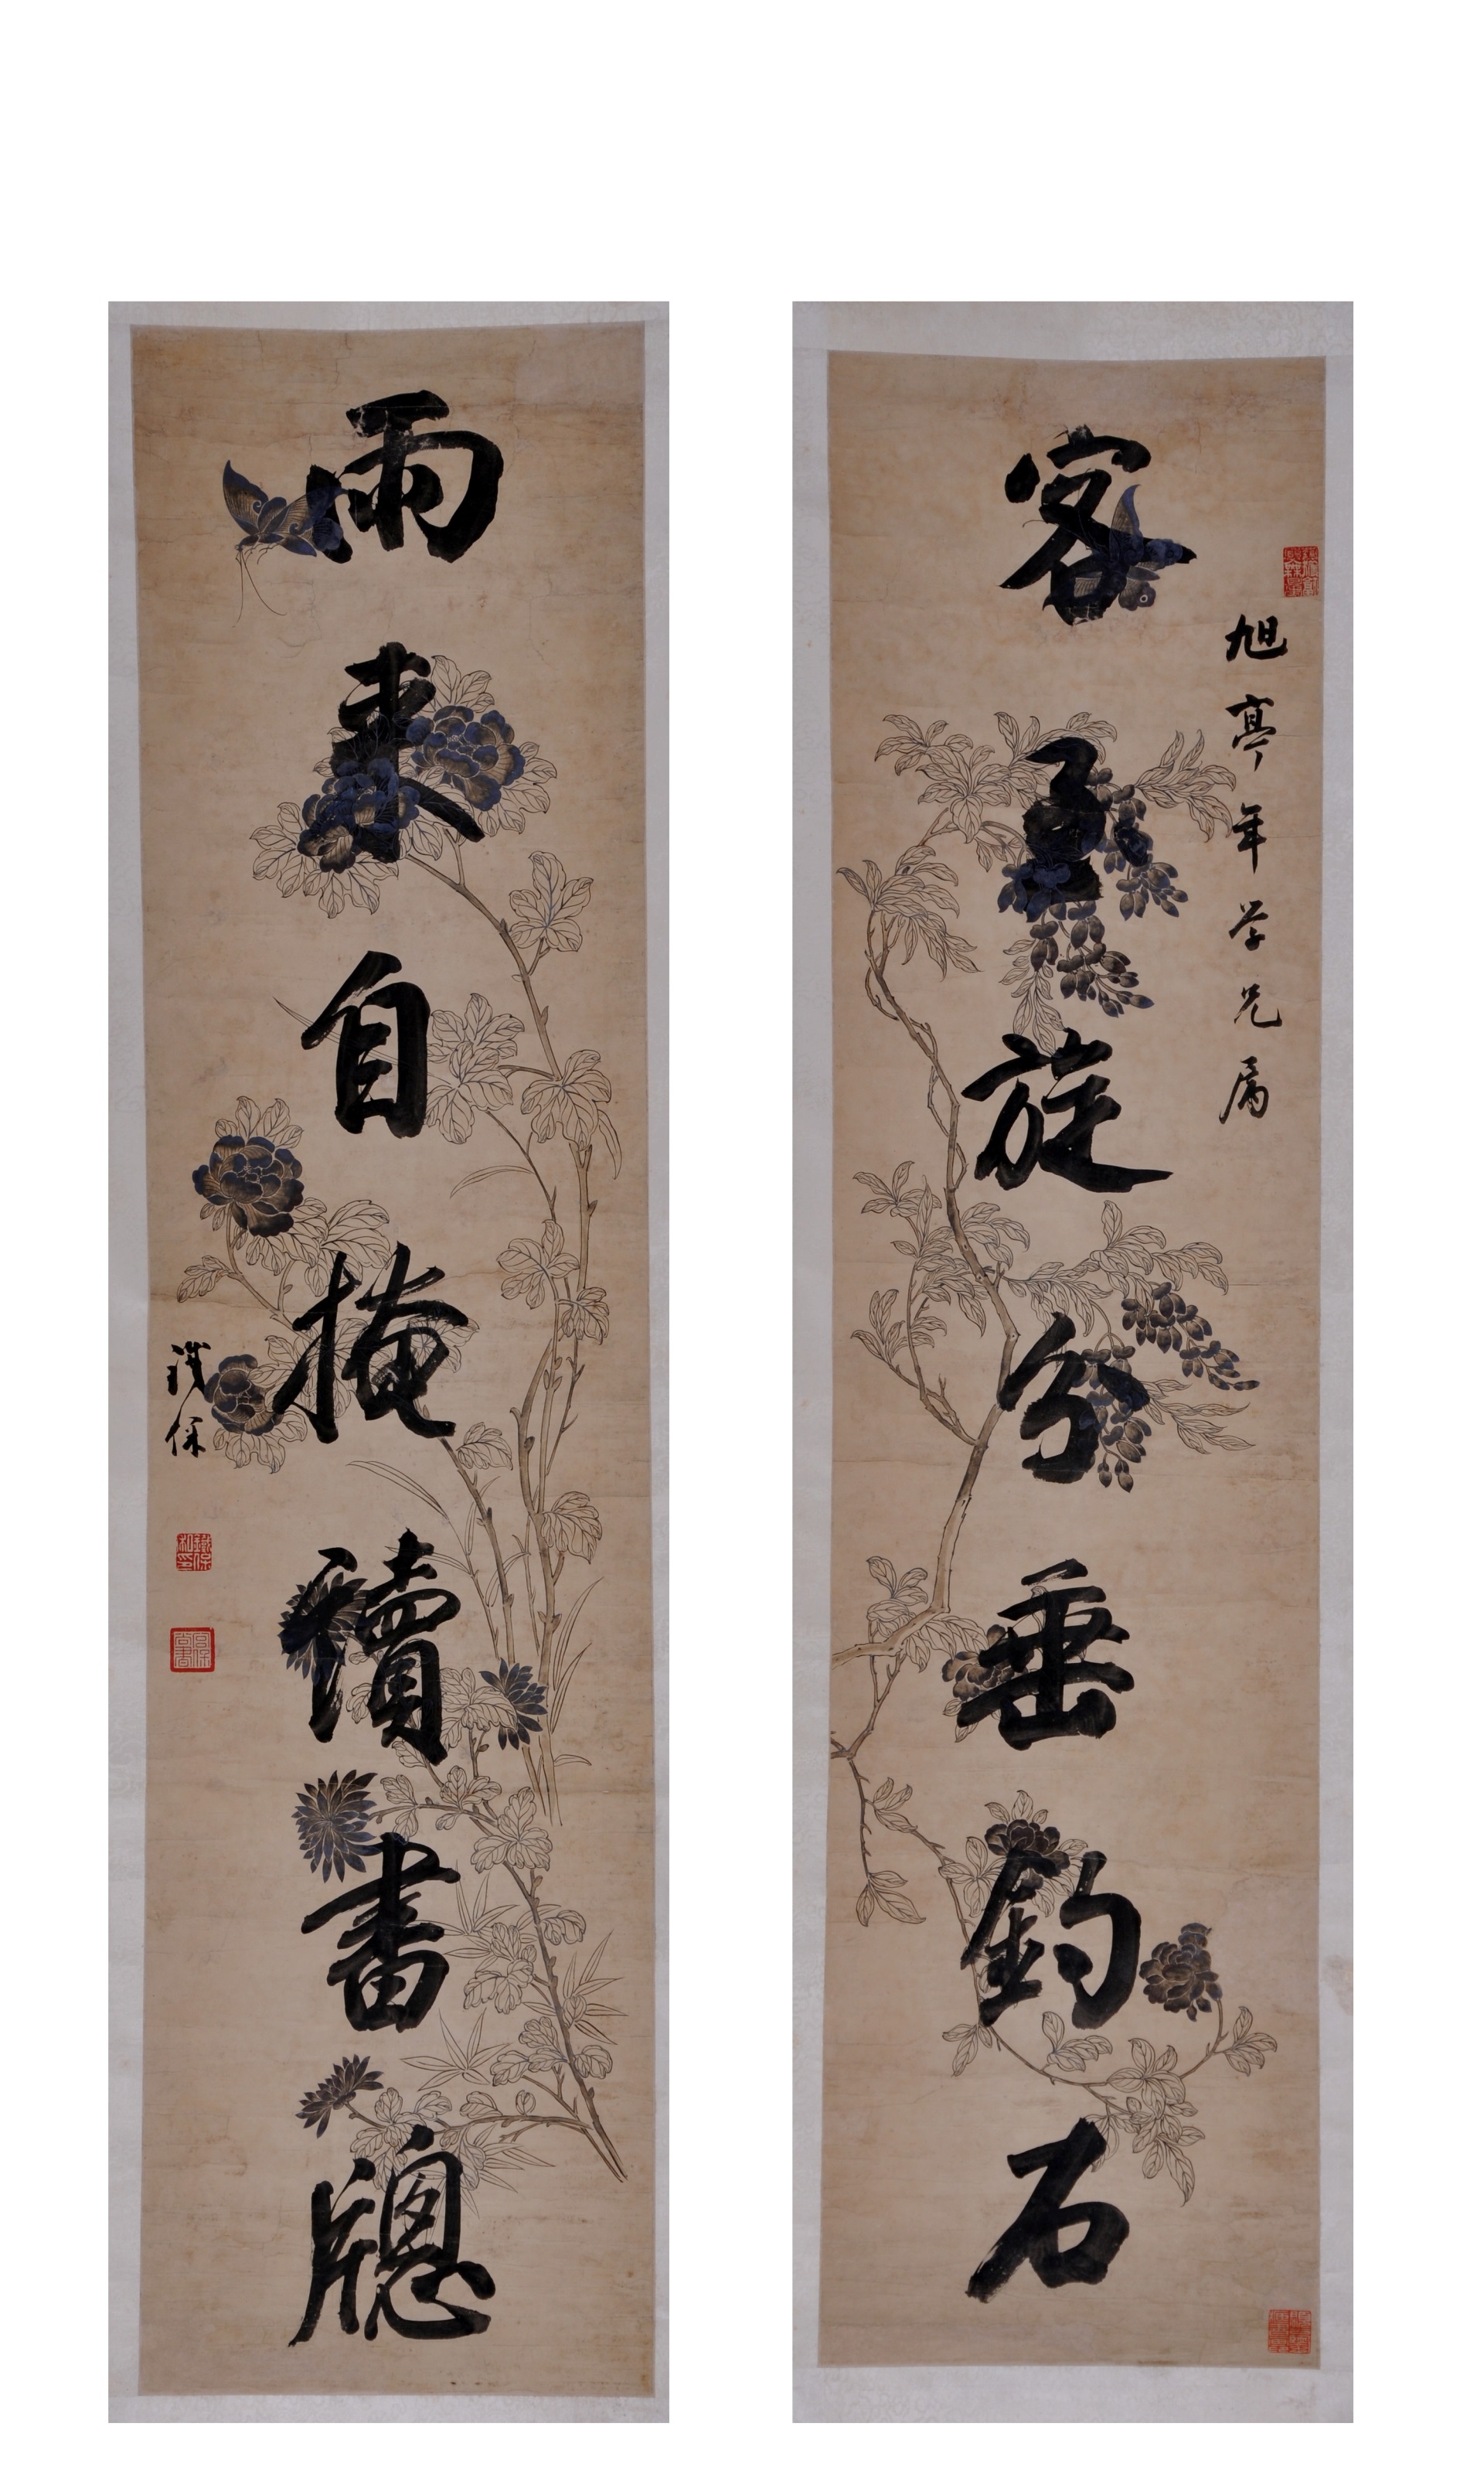 旭亭年学兄属
客至旋分垂釣石
雨來自掩讀書牕
鐵保
鐵保私印